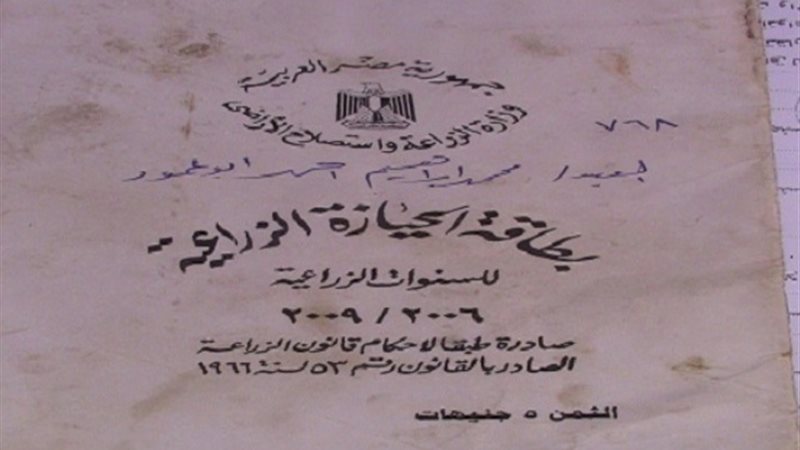 جمهورية مصر العربية
وزارة الزراعة واستصلاح الأراضى
٧٦٨
محمد ابراهيم احمد
بطاقة الحيازة الزراعية
للسنوات الزراعية
٢٠٠٦ / ٢٠٠٩
صادرة طبقا لاحكام قانون الزراعة
الصادر بالقانون رقم ٥٣ لسنة ١٩٦٦
الثمن ٥ جنيهات